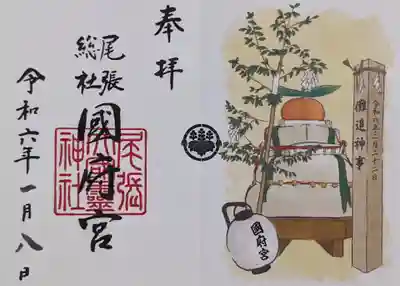 奉拝
尾張
総社
國府宮
尾張大
國霊
神社
令和六年一月八日
儺追神事
令和六年二月二十二日
國府宮